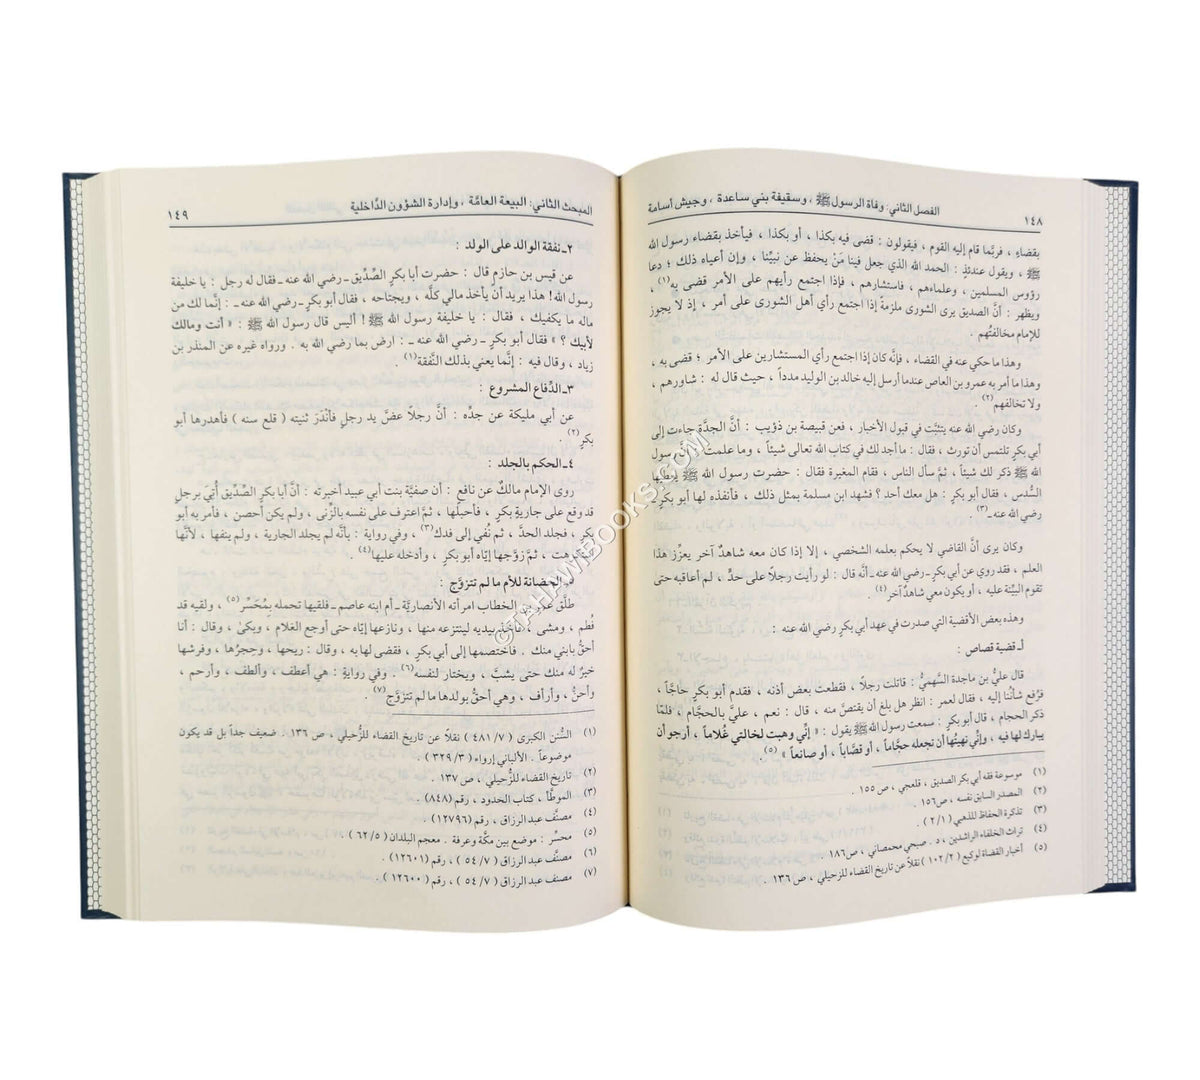 ١٤٨ الفصل الثاني: وفاة الرسول ﷺ ، وسقيفة بني ساعدة ، وجيش أسامة
بقضاءٍ ، فربَّما قام إليه القوم ، فيقولون : قضى فيه بكذا ، أو بكذا ، فيأخذ بقضاء رسول الله
ﷺ ، ويقول عندئذٍ : الحمد الله الذي جعل فينا مَنْ يحفظ عن نبيِّنا ، وإن أعياه ذلك ؛ دعا
رؤوس المسلمين ، وعلماءهم ، فاستشارهم ، فإذا اجتمع رأيهم على الأمر قضى به(١) ،
ويظهر : أنَّ الصديق يرى الشورى ملزمةً إذا اجتمع رأي أهل الشورى على أمر ، إذ لا يجوز
للإمام مخالفتُهم .
وهذا ما حكي عنه في القضاء ، فإنَّه كان إذا اجتمع رأي المستشارين على الأمر ؛ قضى به ،
وهذا ما أمر به عمرو بن العاص عندما أرسل إليه خالد بن الوليد مدداً ، حيث قال له : شاورهم ،
ولا تخالفهم(٢) .
وكان رضي الله عنه يتثبَّت في قبول الأخبار ، فعن قبيصة بن ذؤيب : أنَّ الجدَّة جاءت إلى
أبي بكرٍ تلتمس أن تورث ، فقال : ما أجد لك في كتاب الله تعالى شيئاً ، وما علمت أنَّ رسول
الله ﷺ ذكر لك شيئاً ، ثمَّ سأل الناس ، فقام المغيرة فقال : حضرت رسول الله ﷺ يعطيها
السُّدس ، فقال أبو بكر : هل معك أحد ؟ فشهد ابن مسلمة بمثل ذلك ، فأنفذه لها أبو بكرٍ ـ
رضي الله عنه ـ(٣)
وكان يرى أنَّ القاضي لا يحكم بعلمه الشخصي ، إلا إذا كان معه شاهدٌ آخر يعزِّز هذا
العلم ، فقد روي عن أبي بكر ـ رضي الله عنه ـ أنَّه قال : لو رأيت رجلاً على حدٍّ ، لم أعاقبه حتى
تقوم البيِّنة عليه ، أو يكون معي شاهدٌ آخر(٤) .
وهذه بعض الأقضية التي صدرت في عهد أبي بكرٍ رضي الله عنه :
أـ قضية قصاص :
قال عليُّ بن ماجدة السهميُّ : قاتلت رجلاً ، فقطعت بعض أذنه ، فقدم أبو بكر حاجَّاً ،
فرُفع شأننا إليه ، فقال لعمر : انظر هل بلغ أن يقتصَّ منه ، قال : نعم ، عليَّ بالحجَّام ، فلمَّا
ذكر الحجام ، قال أبو بكر : سمعت رسول الله ﷺ يقول : « إنِّي وهبت لخالتي غُلاماً ، أرجو أن
يبارك لها فيه ، وإنِّي نهيتُها أن تجعله حجَّاماً ، أو قصَّاباً ، أو صانعاً »(٥) .
(١) موسوعة فقه أبي بكر الصديق ، قلعجي ، ص ١٥٥ .
(٢) المصدر السابق نفسه ، ص١٥٦ .
(٣) تذكرة الحفاظ للذهبي (٢/١) .
(٤) تراث الخلفاء الراشدين ، د . صبحي محمصاني ، ص١٨٦ .
(٥) أخبار القضاة لوكيع (١٠٢/٢) نقلاً عن تاريخ القضاء للزحيلي ، ص ١٣٦ .
المبحث الثاني: البيعة العامَّة ، وإدارة الشؤون الدَّاخلية ١٤٩
٢ـ نفقة الوالد على الولد :
عن قيس بن حازمٍ قال : حضرت أبا بكرٍ الصِّدِّيق ـ رضي الله عنه ـ فقال له رجل : يا خليفة
رسول الله! هذا يريد أن يأخذ مالي كلَّه ، ويجتاحه ، فقال أبو بكرٍ ـ رضي الله عنه ـ : إنَّما لك من
ماله ما يكفيك ، فقال : يا خليفة رسول الله ﷺ ! أليس قال رسول الله ﷺ : « أنت ومالك
لأبيك ؟ » فقال أبو بكر ـ رضي الله عنه ـ : ارض بما رضي الله به . ورواه غيره عن المنذر بن
زياد ، وقال فيه : إنَّما يعني بذلك النَّفقة(١) .
٣ـ الدِّفاع المشروع :
عن أبي مليكة عن جدِّه : أنَّ رجلاً عضَّ يد رجلٍ فأنْدَرَ ثنيته ( قلع سنه ) فأهدرها أبو
بكرٍ(٢) .
٤ـ الحكم بالجلد :
روى الإمام مالكٌ عن نافع : أن صفيَّة بنت أبي عبيد أخبرته : أنَّ أبا بكرٍ الصِّدِّيق أُتِيَ برجلٍ
قد وقع على جاريةٍ بكرٍ ، فأحبلها ، ثمَّ اعترف على نفسه بالزِّنى ، ولم يكن أحصن ، فأمر به أبو
بكرٍ ، فجلد الحدَّ ، ثم نُفي إلى فدك(٣) ، وفي رواية : بأنَّه لم يجلد الجارية ، ولم ينفها ، لأنَّها
استكرهت ، ثمَّ زوَّجها إيَّاه أبو بكرٍ ، وأدخله عليها(٤) .
٥ـ الحضانة للأم ما لم تتزوَّج :
طلَّق عمر بن الخطاب امرأته الأنصاريَّة ـ أم ابنه عاصم ـ فلقيها تحمله بِمُحَسِّر(٥) ، ولقيه قد
فُطم ، ومشى ، فأخذ بيديه لينتزعه منها ، ونازعها إيَّاه حتى أوجع الغلام ، وبكى ، وقال : أنا
أحقُّ بابني منك . فاختصما إلى أبي بكرٍ ، فقضى لها به ، وقال : ريحها ، وحجرُها ، وفرشها
خيرٌ له منك حتى يشبَّ ، ويختار لنفسه(٦) . وفي روايةٍ : هي أعطف ، وألطف ، وأرحم ،
وأحنُّ ، وأرأف ، وهي أحقُّ بولدها ما لم تتزوَّج(٧)
(١) السُّنن الكبرى (٤٨١/٧) نقلاً عن تاريخ القضاء للزُّحيلي ، ص ١٣٦ . ضعيف جداً بل قد يكون
موضوعاً . الألباني إرواء (٣٢٩/٣ ) .
(٢) تاريخ القضاء للزُّحيلي ، ص ١٣٧ .
(٣) الموطَّأ ، كتاب الحدود ، رقم (٨٤٨) .
(٤) مصنَّف عبد الرزاق ، رقم (١٢٧٩٦) .
(٥) محسِّر : موضع بين مكَّة وعرفة . معجم البلدان (٦٢/٥) .
(٦) مصنف عبد الرزاق (٥٤/٧) ، رقم (١٢٦٠١) .
(٧) مصنف عبد الرزاق (٥٤/٧) ، رقم (١٢٦٠٠) .